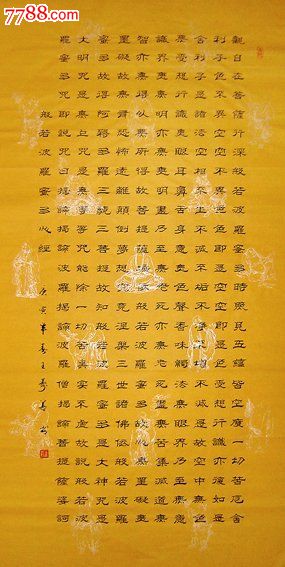 7788.com
觀自在菩薩行深般若波羅蜜多時照見五蘊皆空度一切苦厄舍
利子色不異空空不異色色即是空空即是色受想行識亦復如是
舍利子是諸法空相不生不滅不垢不淨不增不減是故空中無色
無受想行識無眼耳鼻舌身意無色聲香味觸法無眼界乃至無意
識界無無明亦無無明盡乃至無老死亦無老死盡無苦集滅道無
智亦無得以無所得故菩提薩埵依般若波羅蜜多故心無罣礙無
罣礙故無有恐怖遠離顛倒夢想究竟涅槃三世諸佛依般若波羅
蜜多故得阿耨多羅三藐三菩提故知般若波羅蜜多是大神咒是
大明咒是無上咒是無等等咒能除一切苦真實不虛故說般若波
羅蜜多咒即說咒曰揭諦揭諦波羅揭諦波羅僧揭諦菩提薩婆訶
般若波羅蜜多心經
庚寅年春王壽書